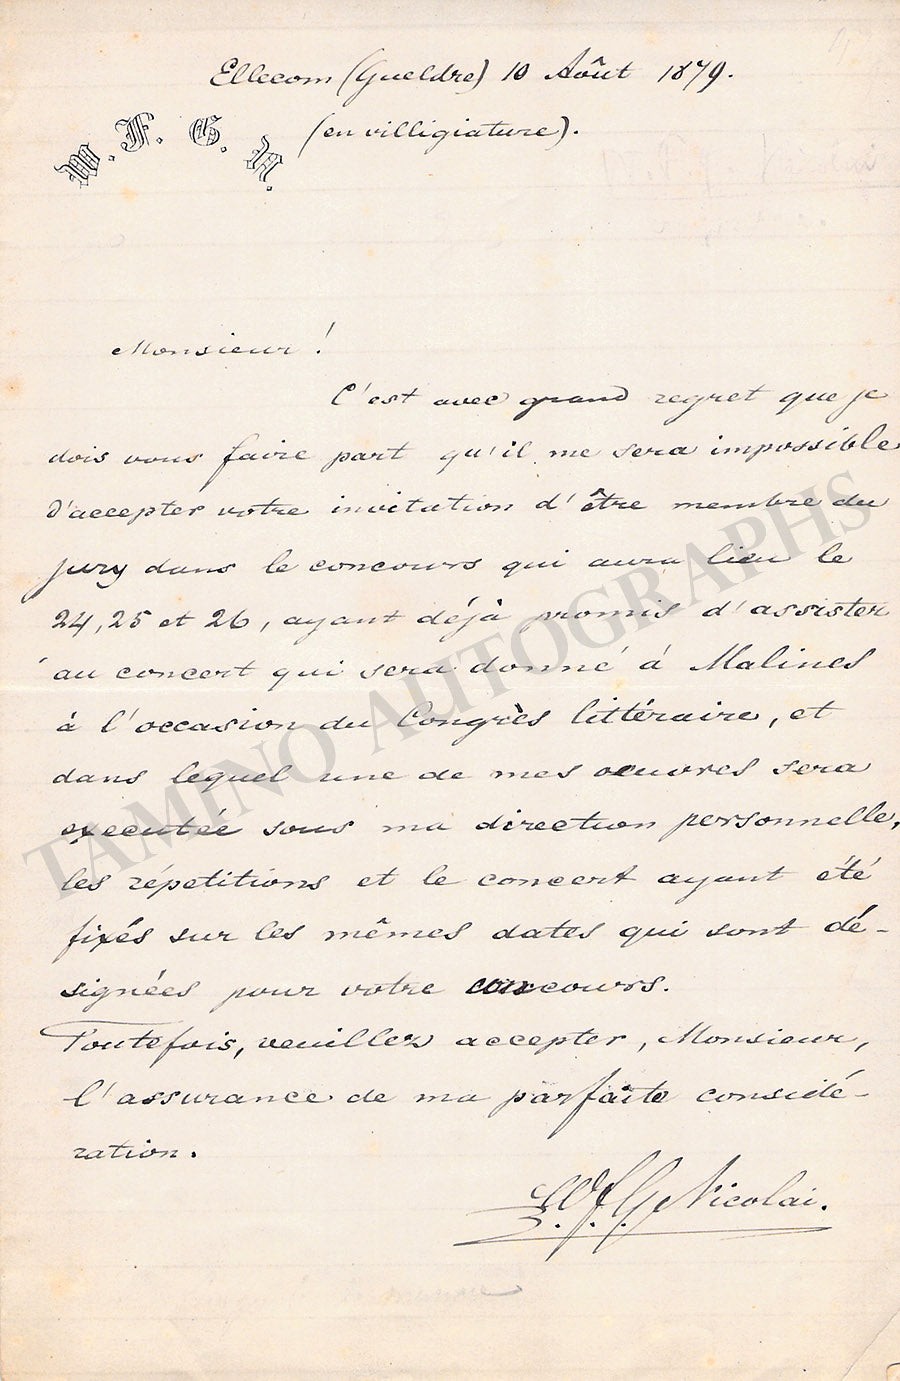 Ellecom (Gueldre) 10 Août 1879.
W. F. G. N.
(en villigiature).
Monsieur !
C'est avec grand regret que je
dois vous faire part qu'il me sera impossible
d'accepter votre invitation d'être membre du
jury dans le concours qui aura lieu le
24, 25 et 26, ayant déjà promis d'assister
au concert qui sera donné à Malines
à l'occasion du Congrès littéraire, et
dans lequel une de mes oeuvres sera
executée sous ma direction personnelle,
les répetitions et le concert ayant été
fixés sur les mêmes dates qui sont dé-
signées pour votre concours.
Toutefois, veuillez accepter, Monsieur,
l'assurance de ma parfaite considé-
ration.
W. F. G. Nicolai.
TAMINO AUTOGRAPHS